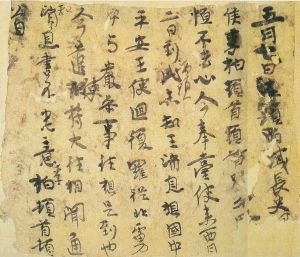 五月七日海頭西域長史
侯李柏頓首頓首
恒不去心今奉臺使來西月
二日到此未知王消息想國中
平安王使迴復羅從北虜
中与嚴參事往想是到也
今遣使苻大往相聞通
消息書不悉意李柏頓首頓
首